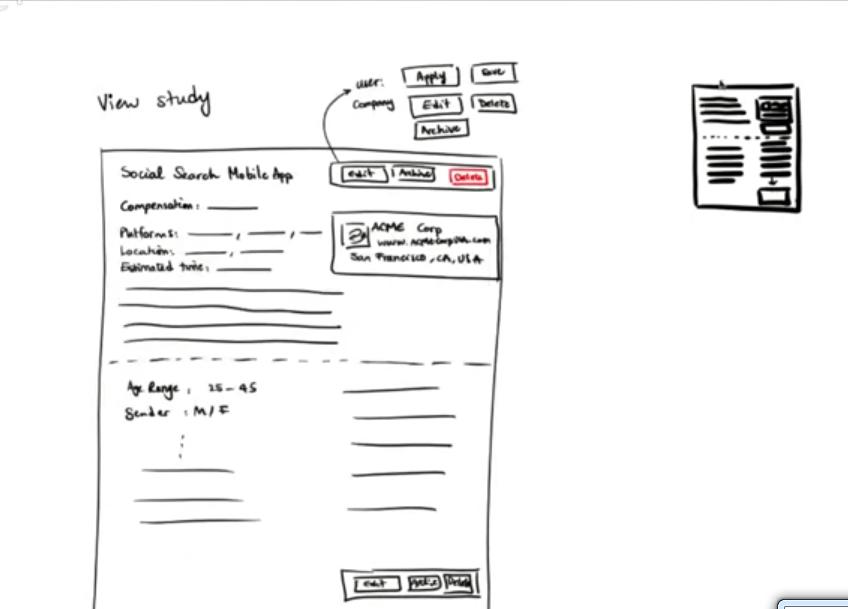 View study
User: Apply Save
Company Edit Delete
Archive
Social Search Mobile App
Edit Archive Delete
Compensation:
Platforms: , ,
Location: ,
Estimated time:
ACME Corp
San Francisco, CA, USA
Age Range : 25-45
Gender : M/F
Edit Delete